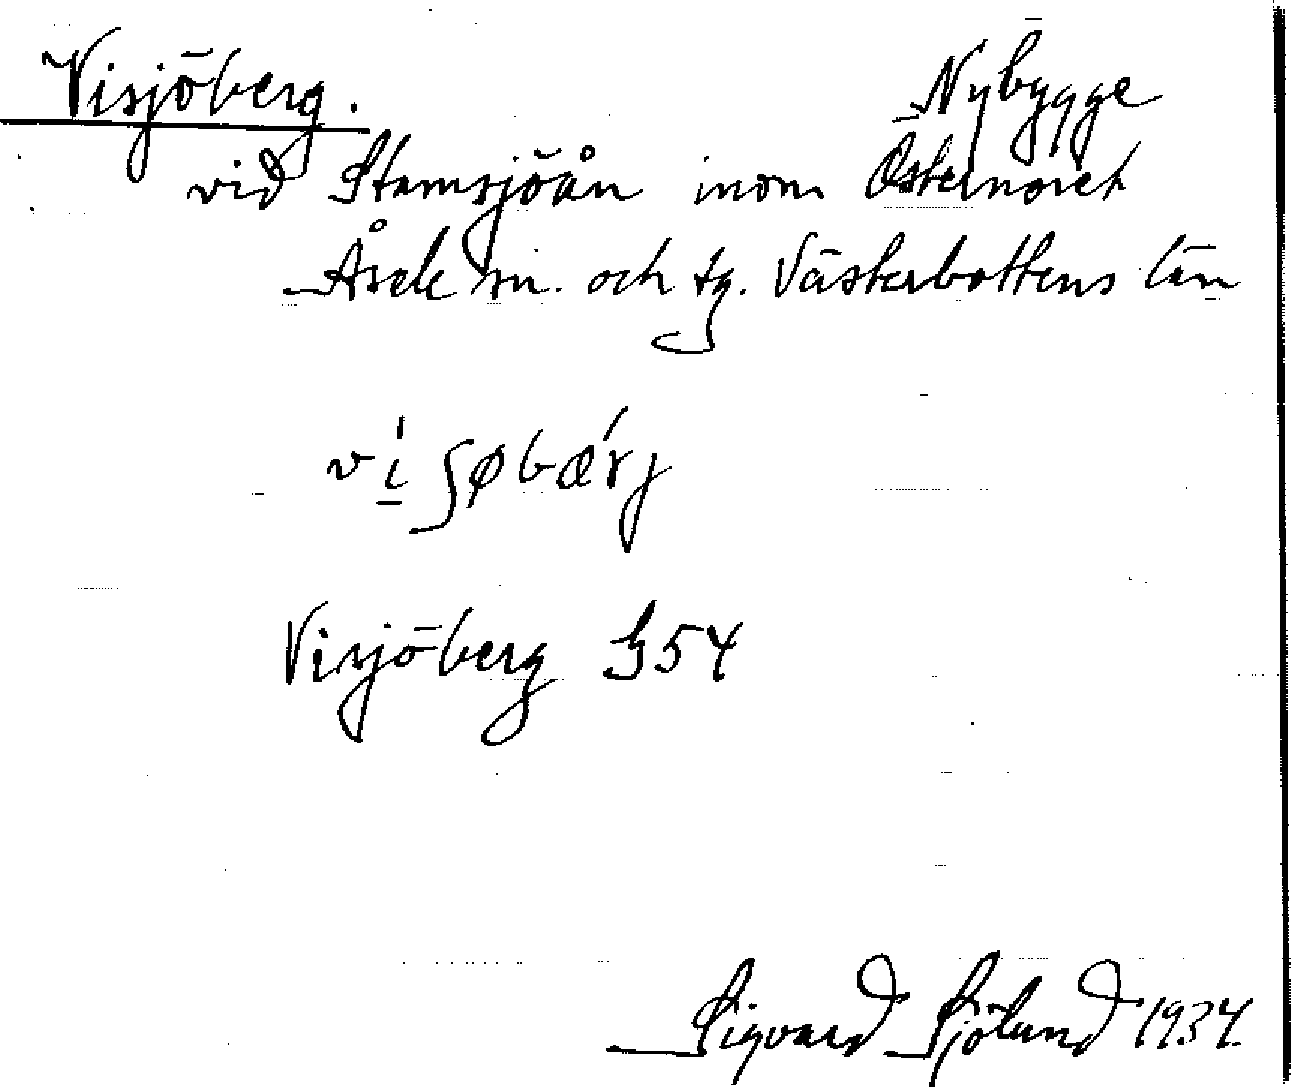 Visjöberg. Nybygge
vid Stamsjöån inom Östernoret
Åsele sn. och tg. Västerbottens län
vi̱ʃøbærj
Visjöberg G54
Sigvard Sjölund 1934.